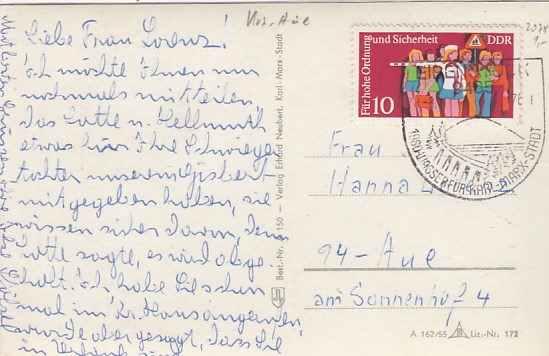 Liebe Frau Lorenz!
Ich möchte Ihnen nur
nochmals mitteilen,
das Lotte u. Hellmuth
etwas für Ihre Schwieger
tochter unserem Gisbert
mitgegeben haben, sie
wissen sicher davon, denn
Lotte sagte, es wird abge-
holt. Ich habe Sie schon
mal im Kr.haus angerufen,
wurde aber gesagt, dass Sie
in Urlaub sind
Best.-Nr. 150 – Verlag Erhard Neubert, Karl-Marx-Stadt
Für hohe Ordnung
und Sicherheit
DDR
10
2078
1,-
KARL-MARX-STADT
Frau
Hanna
94-Aue
am Sonnenhof 4
A 162/55
Liz.-Nr. 172